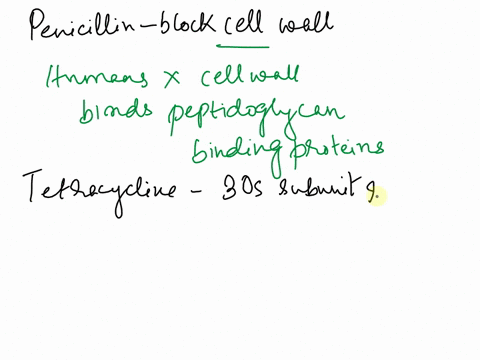 Penicillin - block cell wall
Humans x cell wall
binds peptidoglycan
binding proteins
Tetracycline - 30s subunit